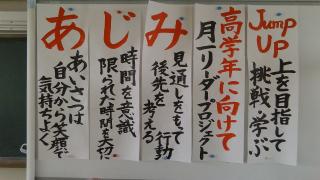 Jump UP
上を目指して
挑戦、学ぶ
高学年に向けて
月一リーダープロジェクト
み
見通しをもって行動
後先を考える
じ
時間を意識
限られた時間を大切に
あ
あいさつは
自分から笑顔で
気持ちよく